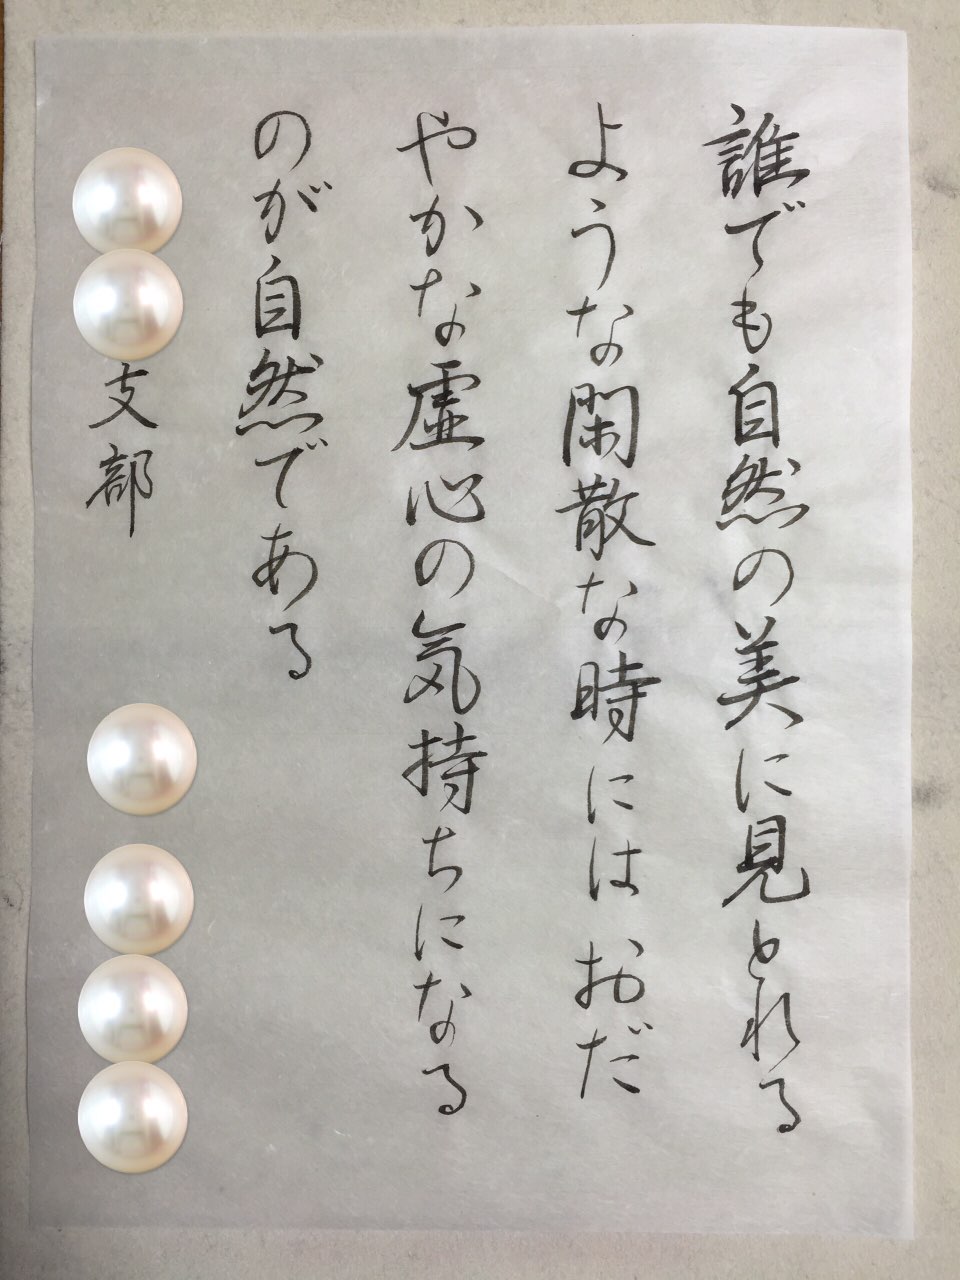 誰でも自然の美に見とれる
ような閑散な時には おだ
やかな虚心の気持ちになる
のが自然である
支部